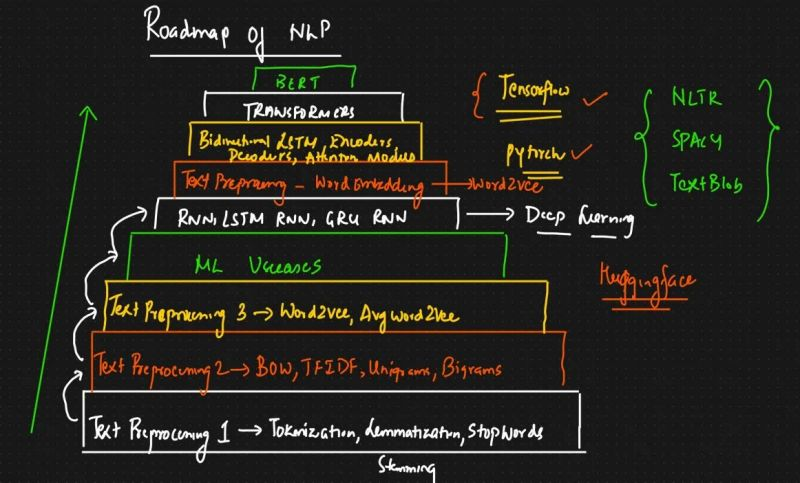 Roadmap of NLP
BERT
TRANSFORMERS
Bidirectional LSTM, Encoders,
Decoders, Attention Models
Text Preprocessing – Word Embedding → Word2vec
RNN, LSTM RNN, GRU RNN → Deep Learning
ML Usecases
Text Preprocessing 3 → Word2vec, Avgword2vec
Text Preprocessing 2 → BOW, TFIDF, Unigrams, Bigrams
Text Preprocessing 1 → Tokenization, Lemmatization, StopWords
Stemming
Tensorflow
Pytorch
NLTK
SPACY
TextBlob
Huggingface